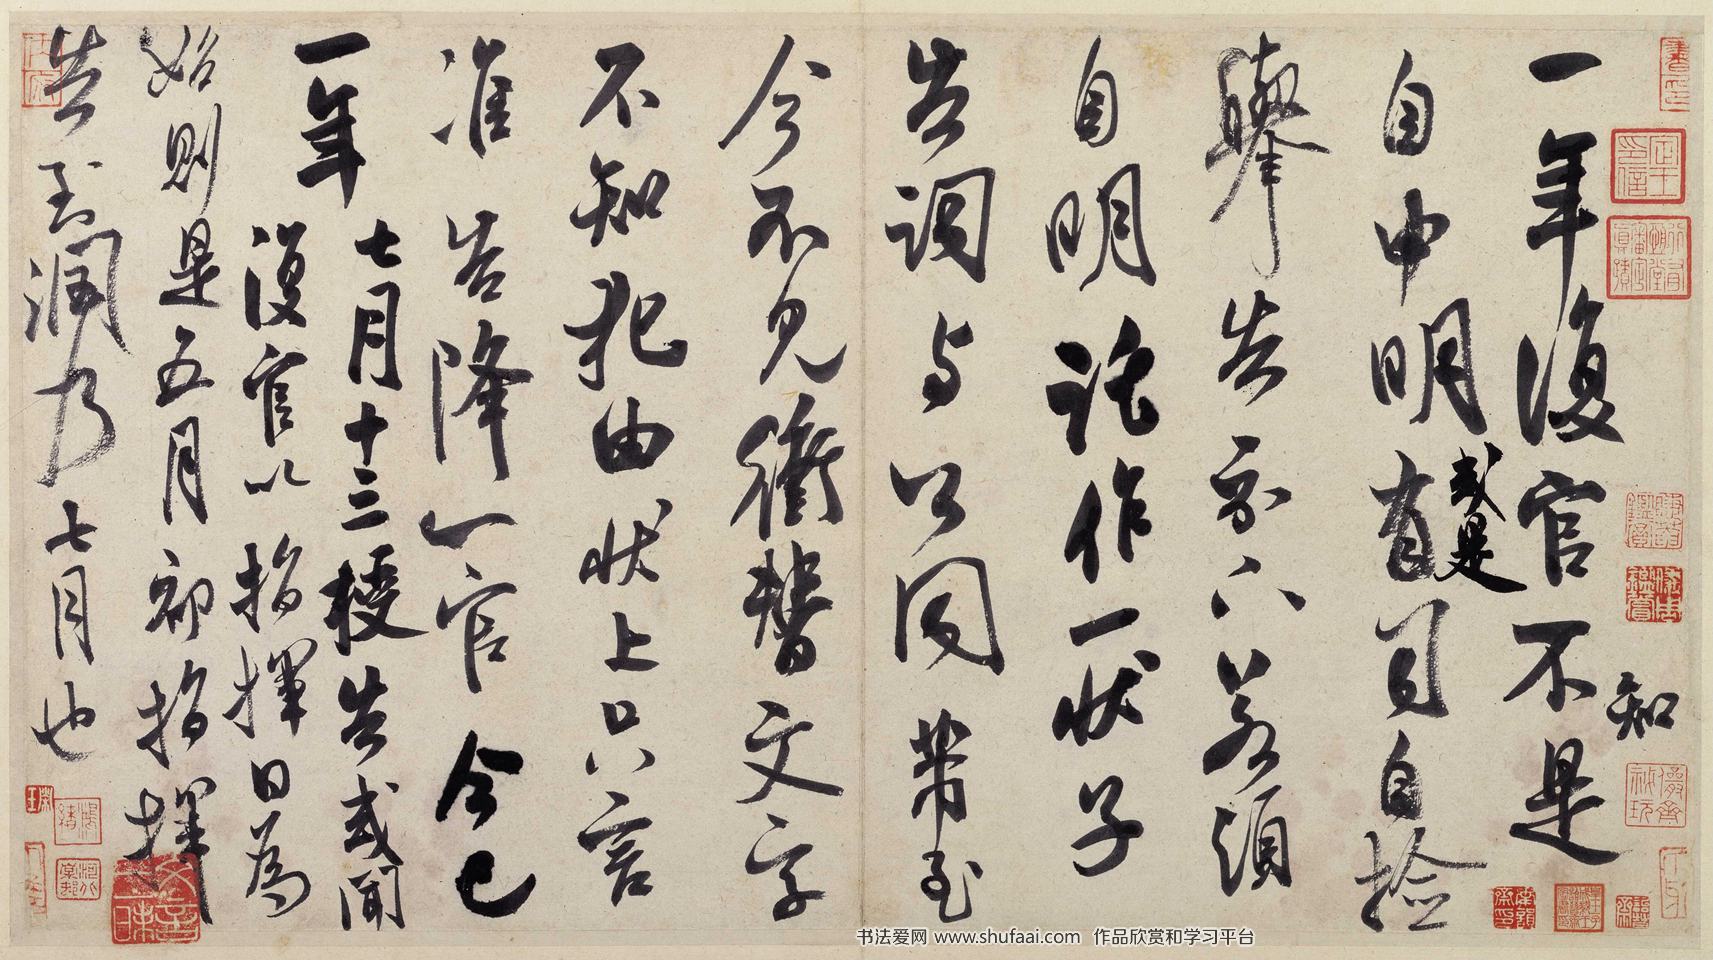 一年復官不是
知
自申明或是有司自撿
舉告示下若須
自明許作一狀子
告詞与公同帶至
今不見衝替文字
不知犯由狀上只言
准告降一官今已
一年
七月十三授告或聞
復官以指揮日為
始則是五月初指揮
告至潤乃七月也
书法爱网 www.shufaai.com 作品欣赏和学习平台